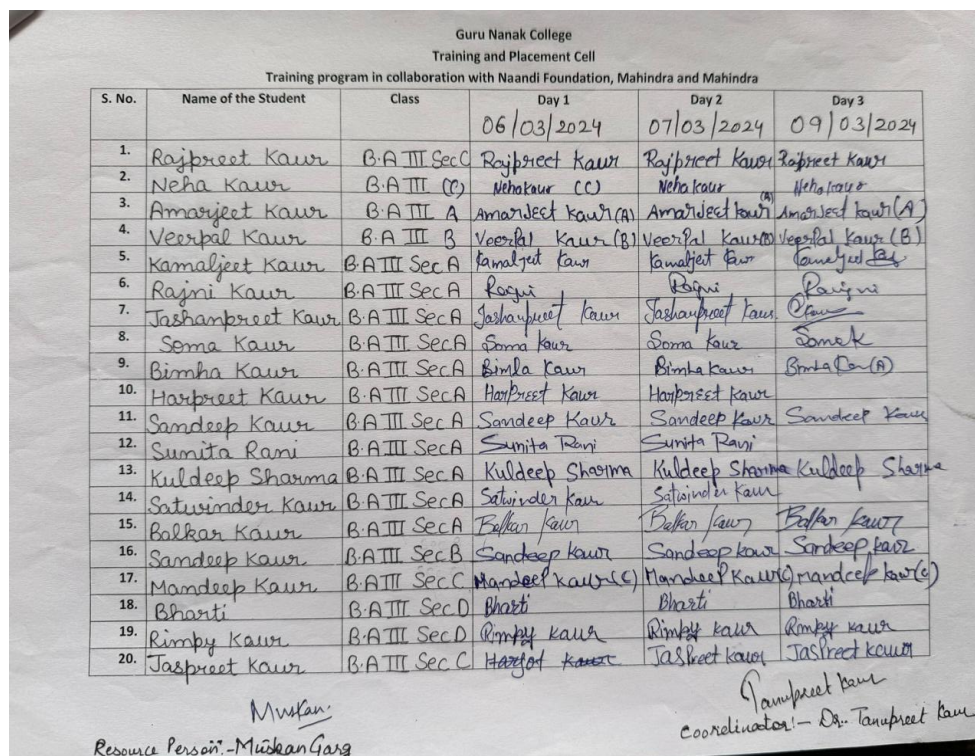 Guru Nanak College
Training and Placement Cell
Training program in collaboration with Naandi Foundation, Mahindra and Mahindra
S. No. Name of the Student Class Day 1 Day 2 Day 3
06/03/2024 07/03/2024 09/03/2024
1. Rajpreet Kaur B.A III Sec C Rajpreet Kaur Rajpreet Kaur Rajpreet Kaur
2. Neha Kaur B.A III (C) Neha Kaur (C) Neha Kaur Neha Kaur
3. Amarjeet Kaur B.A III A Amarjeet Kaur (A) Amarjeet Kaur (A) Amarjeet Kaur (A)
4. Veerpal Kaur B.A III B Veerpal Kaur (B) Veerpal Kaur (B) Veerpal Kaur (B)
5. Kamaljeet Kaur B.A III Sec A Kamaljeet Kaur Kamaljeet Kaur Kamaljeet
6. Rajni Kaur B.A III Sec A
7. Jashanpreet Kaur B.A III Sec A Jashanpreet Kaur Jashanpreet Kaur
8. Soma Kaur B.A III Sec A Soma Kaur Soma Kaur Soma K
9. Bimha Kaur B.A III Sec A Bimla Kaur Bimha Kaur (A)
10. Harpreet Kaur B.A III Sec A Harpreet Kaur Harpreet Kaur
11. Sandeep Kaur B.A III Sec A Sandeep Kaur Sandeep Kaur Sandeep Kaur
12. Sunita Rani B.A III Sec A Sunita Rani Sunita Rani
13. Kuldeep Sharma B.A III Sec A Kuldeep Sharma Kuldeep Sharma Kuldeep Sharma
14. Satwinder Kaur B.A III Sec A Satwinder Kaur Satwinder Kaur
15. Balkar Kaur B.A III Sec A Balkar Kaur Balkar Kaur Balkar Kaur
16. Sandeep Kaur B.A III Sec B Sandeep Kaur Sandeep Kaur Sandeep Kaur
17. Mandeep Kaur B.A III Sec C Mandeep Kaur (C) Mandeep Kaur (C) Mandeep Kaur (C)
18. Bharti B.A III Sec D Bharti Bharti Bharti
19. Rimpy Kaur B.A III Sec D Rimpy Kaur Rimpy Kaur Rimpy Kaur
20. Jaspreet Kaur B.A III Sec C Harjot Kaur Jaspreet Kaur Jaspreet Kaur
Muskan. Tanupreet Kaur
Resource Person:- Muskan Garg Coordinator:- Dr. Tanupreet Kaur